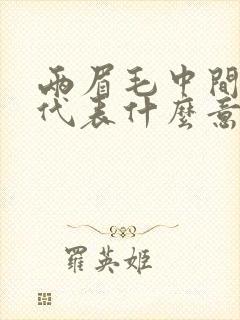 兩眉毛中間
代表什麼意
羅英姬